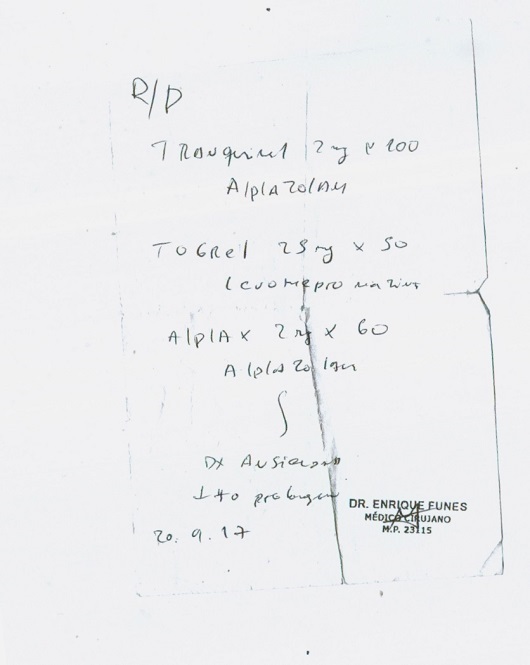 R/P
TRANQUINAL 2 mg x 100
AlplAZOlAM
TOGREl 25 mg x 50
levomepromazina
AlplAX 2 mg x 60
AlplAZOlAM
DX Ansiedad
Tto prolongado
20.9.17
DR. ENRIQUE FUNES
MÉDICO CIRUJANO
M.P. 23115